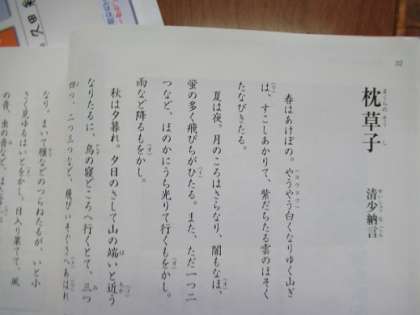 32
枕草子
まくらのそうし
清少納言
せいしょうなごん
春はあけぼの。やうやう白くなりゆく山ぎ
は、すこしあかりて、紫だちたる雲のほそく
たなびきたる。
夏は夜。月のころはさらなり、闇もなほ、
蛍の多く飛びちがひたる。また、ただ一つ二
つなど、ほのかにうち光りて行くもをかし。
雨など降るもをかし。
秋は夕暮れ。夕日のさして山の端いと近う
なりたるに、烏の寝どころへ行くとて、三つ
四つ、二つ三つなど、飛びいそぐさへあはれ
なり。まいて雁などのつらねたるが、いと小
さく見ゆるはいとをかし。日入り果てて、風
の音、虫の音など、